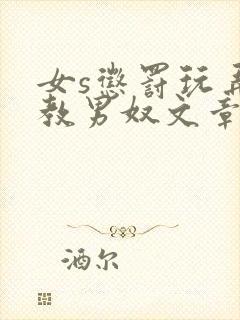 女s惩罚玩弄
教男奴文章
酒尔